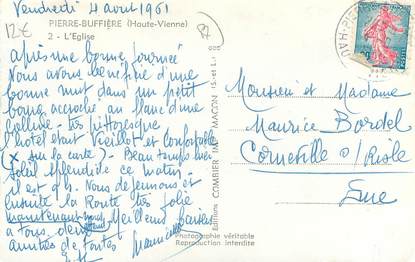 Vendredi 4 août 1961
12€
PIERRE-BUFFIÈRE (Haute-Vienne)
2 - L'Eglise
après une bonne journée
Nous avons bénéficié d'une
bonne nuit dans un petit
bourg accroché au flanc d'une
colline - très pittoresque
l'hotel étant Vieillot et Confortable
(x sur la carte) - Beau temps hier
Soleil Splendide ce matin -
il est 9h. Nous déjeunons et
ensuite la Route très jolie
maintenant Meilleurs baisers
a tous deux
amitiés de toutes
Monsieur et Madame
Maurice Bordel
Corneville s/Risle
Eure
Editions COMBIER IMP. MACON (S.-et-L.)
Photographie véritable
Reproduction interdite